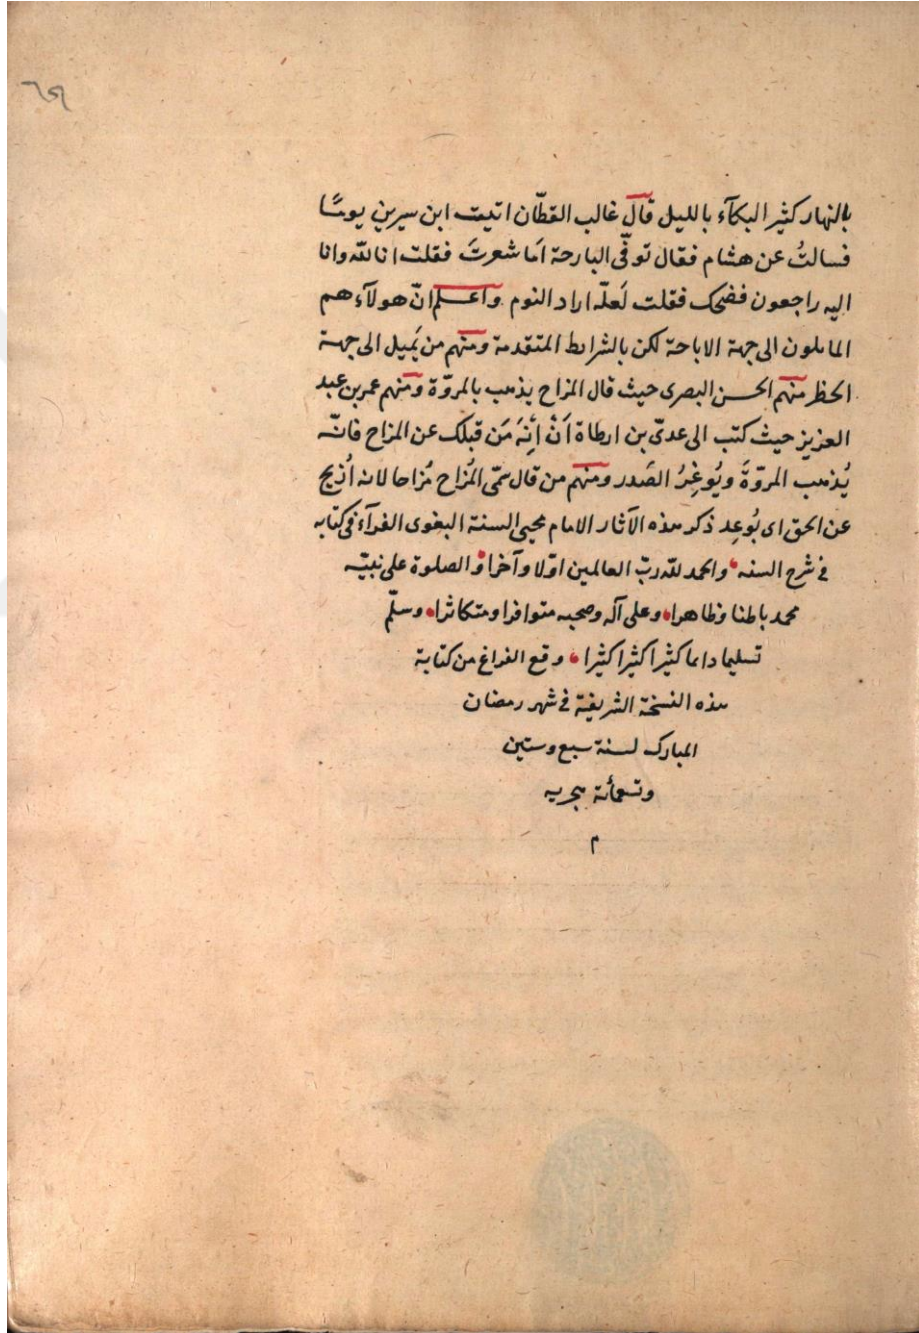 بالنهار كثير البكآء بالليل قال غالب القطّان اتيت ابن سيرين يومًا
فسالتُ عن هشام فقال توفّى البارحة اَما شعرتَ فقلت انا لله وانا
اليه راجعون فضحك فقلت لَعلّه اراد النوم واعلم انّ هولآء هم
المايلون الى جهة الاباحة لكن بالشرايط المتقدمة ومنهم من يَميل الى جهة
الحظر منهم الحسن البصرى حيث قال المزاح يذهب بالمروّة ومنهم عمر بن عبد
العزيز حيث كتب الى عدىّ بن ارطاة اَنْ اِنْهَ مَن قبلك عن المزاح فانّه
يُذهب المروّةَ ويُوغِرُ الصَدر ومنهم من قال سمّى المُزاح مُزاحا لانه اُزيح
عن الحق اى بُوعِد ذكر هذه الآثار الامام محيى السنة البغوى الفرآء فى كتابه
فى شرح السنه والحمد لله ربّ العالمين اوّلا وآخرا و الصلوة على نبيّه
محمد باطنا وظاهرا وعلى آله وصحبه متوافرا ومتكاثرا وسلّم
تسليما دايما كثيرا كثيرا كثيرا وقع الفراغ من كتابة
هذه النسخة الشريفة فى شهر رمضان
المبارك لسنة سبع وستين
وتسعمأئة هجريه
م